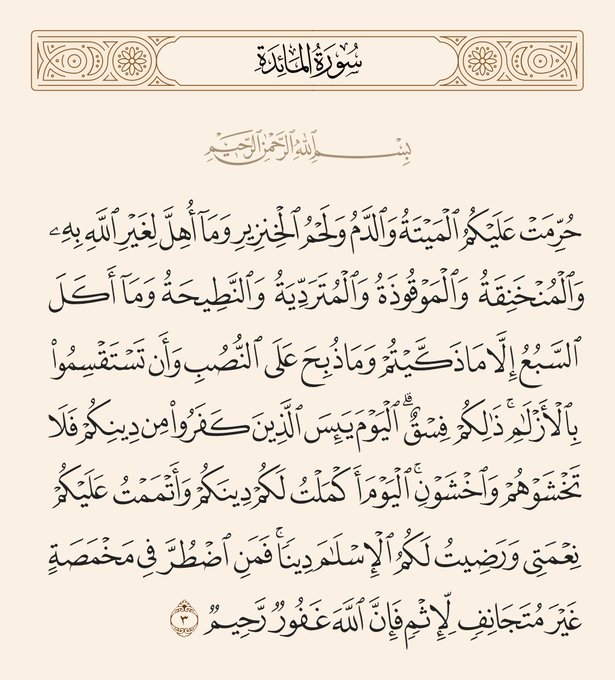 سُورَةُ المَائِدَةِ
بِسْمِ ٱللَّهِ ٱلرَّحْمَٰنِ ٱلرَّحِيمِ
حُرِّمَتْ عَلَيْكُمُ ٱلْمَيْتَةُ وَٱلدَّمُ وَلَحْمُ ٱلْخِنزِيرِ وَمَآ أُهِلَّ لِغَيْرِ ٱللَّهِ بِهِۦ
وَٱلْمُنْخَنِقَةُ وَٱلْمَوْقُوذَةُ وَٱلْمُتَرَدِّيَةُ وَٱلنَّطِيحَةُ وَمَآ أَكَلَ
ٱلسَّبُعُ إِلَّا مَا ذَكَّيْتُمْ وَمَا ذُبِحَ عَلَى ٱلنُّصُبِ وَأَن تَسْتَقْسِمُوا۟
بِٱلْأَزْلَٰمِ ۚ ذَٰلِكُمْ فِسْقٌ ۗ ٱلْيَوْمَ يَئِسَ ٱلَّذِينَ كَفَرُوا۟ مِن دِينِكُمْ فَلَا
تَخْشَوْهُمْ وَٱخْشَوْنِ ۚ ٱلْيَوْمَ أَكْمَلْتُ لَكُمْ دِينَكُمْ وَأَتْمَمْتُ عَلَيْكُمْ
نِعْمَتِى وَرَضِيتُ لَكُمُ ٱلْإِسْلَٰمَ دِينًا ۚ فَمَنِ ٱضْطُرَّ فِى مَخْمَصَةٍ
غَيْرَ مُتَجَانِفٍ لِّإِثْمٍ فَإِنَّ ٱللَّهَ غَفُورٌ رَّحِيمٌ ٣